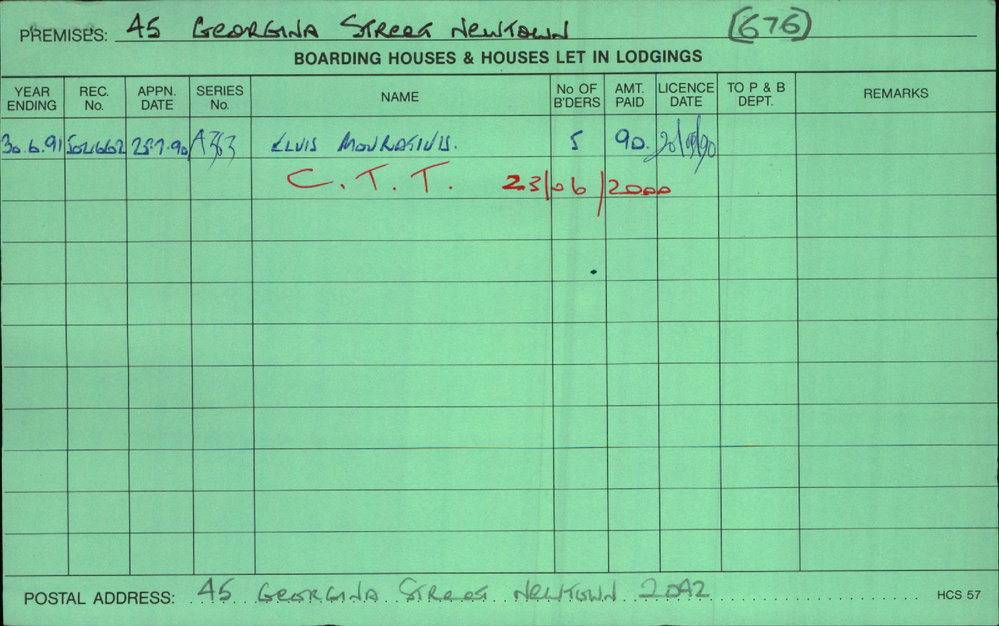 PREMISES: 45 GEORGINA STREET NEWTOWN (676)
BOARDING HOUSES & HOUSES LET IN LODGINGS
YEAR ENDING REC. No. APPN. DATE SERIES No. NAME No OF B'DERS AMT. PAID LICENCE DATE TO P & B DEPT. REMARKS
30.6.91 502662 25.7.90 A363 ELVIS 5 90. 20/09/90
C.T.T. 23/06/2000
POSTAL ADDRESS: 45 GEORGINA STREET NEWTOWN 2042
HCS 57